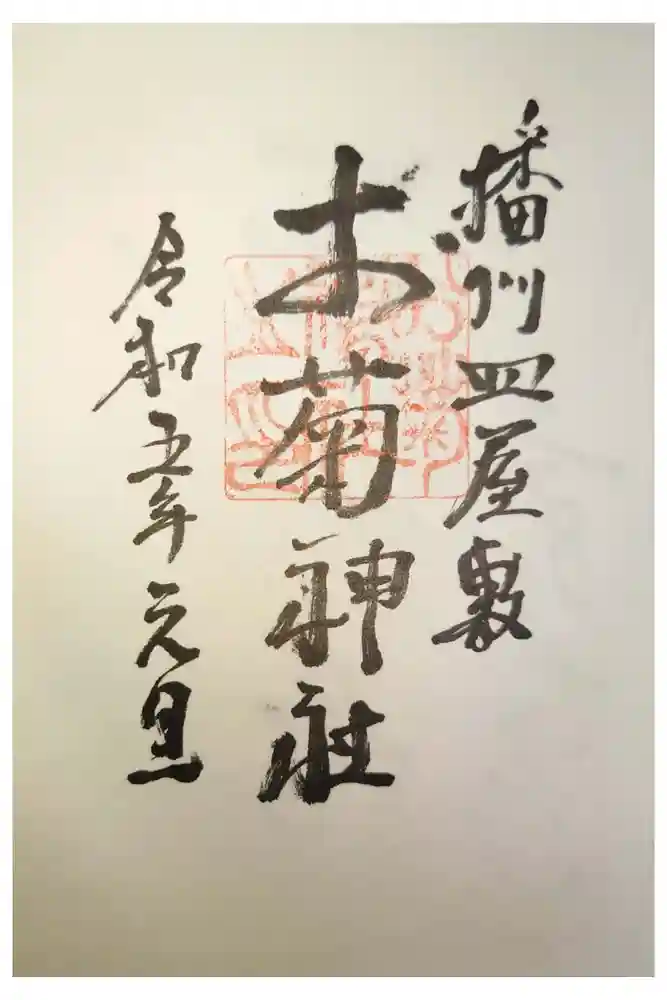 播州皿屋敷
お菊神社
令和五年元旦